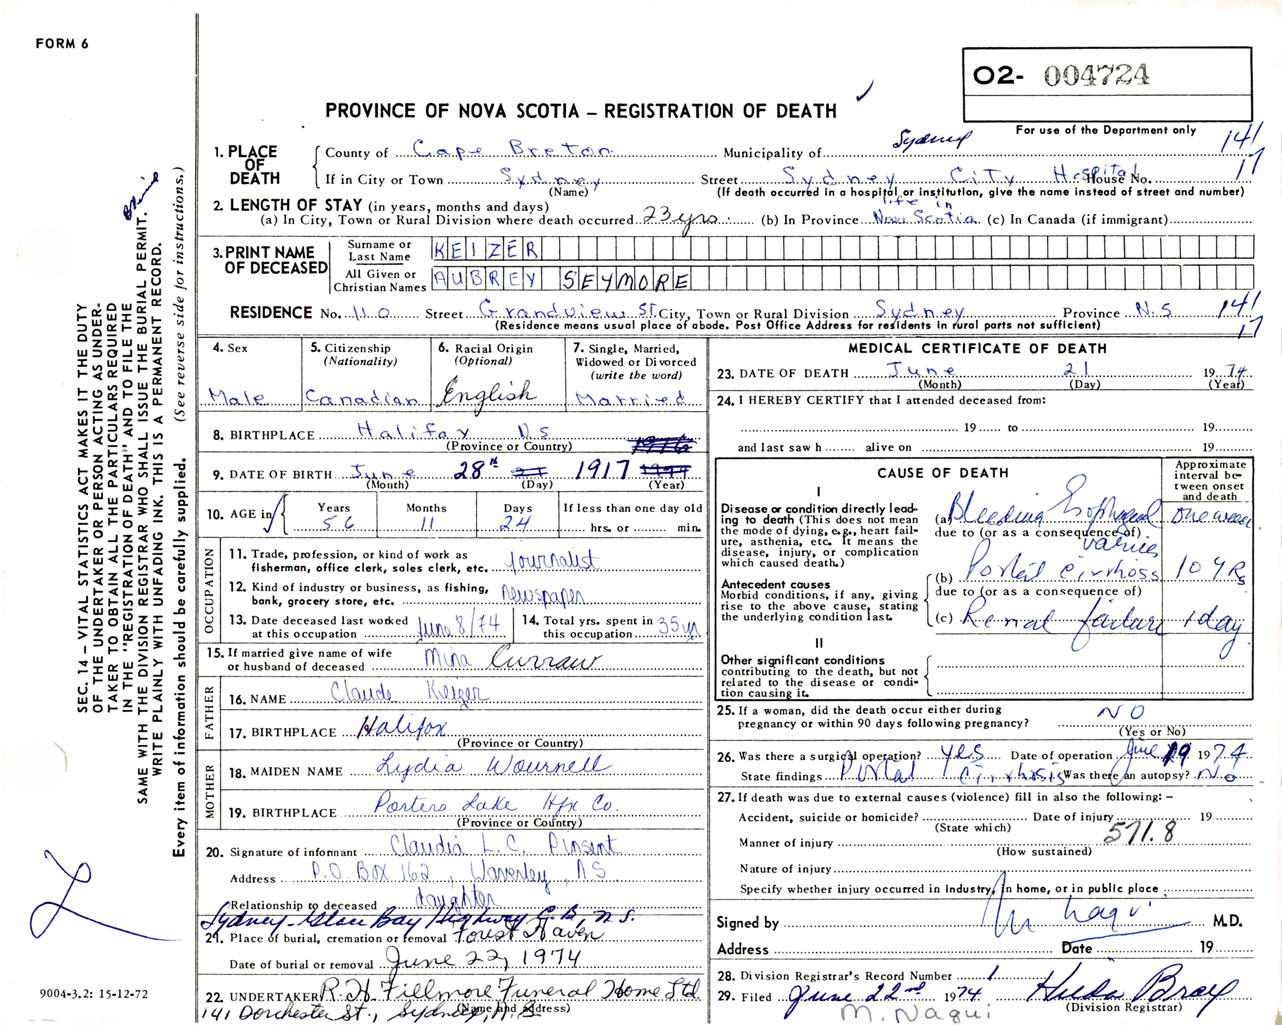 FORM 6
O2- 004724
PROVINCE OF NOVA SCOTIA – REGISTRATION OF DEATH
For use of the Department only
141
17
1. PLACE OF DEATH
County of Cape Breton Municipality of Sydney
If in City or Town Sydney (Name) Street Sydney City Hospital House No.
(If death occurred in a hospital or institution, give the name instead of street and number)
2. LENGTH OF STAY (in years, months and days)
(a) In City, Town or Rural Division where death occurred 23 yrs (b) In Province life in Nova Scotia (c) In Canada (if immigrant)
3. PRINT NAME OF DECEASED
Surname or Last Name KEIZER
All Given or Christian Names AUBREY SEYMORE
RESIDENCE No. 110 Street Grandview St. City, Town or Rural Division Sydney Province N.S
141
17
(Residence means usual place of abode. Post Office Address for residents in rural parts not sufficient)
4. Sex
Male
5. Citizenship (Nationality)
Canadian
6. Racial Origin (Optional)
English
7. Single, Married, Widowed or Divorced (write the word)
Married
8. BIRTHPLACE Halifax NS
(Province or Country)
9. DATE OF BIRTH June 28th 1917
(Month) (Day) (Year)
10. AGE in
Years 56
Months 11
Days 24
If less than one day old
hrs. or min.
OCCUPATION
11. Trade, profession, or kind of work as fisherman, office clerk, sales clerk, etc. Journalist
12. Kind of industry or business, as fishing, bank, grocery store, etc. newspaper
13. Date deceased last worked at this occupation June 8/74
14. Total yrs. spent in this occupation 35 yr
15. If married give name of wife or husband of deceased Mina Curraw
FATHER
16. NAME Claude Keizer
17. BIRTHPLACE Halifax
(Province or Country)
MOTHER
18. MAIDEN NAME Lydia Wournell
19. BIRTHPLACE Porters Lake Hfx Co.
(Province or Country)
20. Signature of informant Claudia L.C. Pinsent
Address P.O Box 162, Waverley, NS
Relationship to deceased daughter
Sydney-Glace Bay Highway C.B., N.S.
21. Place of burial, cremation or removal Forest Haven
Date of burial or removal June 22, 1974
22. UNDERTAKER R.H. Fillmore Funeral Home Ltd.
(Name and address)
141 Dorchester St., Sydney, N.S
MEDICAL CERTIFICATE OF DEATH
23. DATE OF DEATH June 21 1974
(Month) (Day) (Year)
24. I HEREBY CERTIFY that I attended deceased from:
19 to 19
and last saw h alive on 19
CAUSE OF DEATH
Approximate interval between onset and death
I
Disease or condition directly leading to death (This does not mean the mode of dying, e.g., heart failure, asthenia, etc. It means the disease, injury, or complication which caused death.)
(a) Bleeding Esophageal varices one week
due to (or as a consequence of)
Antecedent causes
Morbid conditions, if any, giving rise to the above cause, stating the underlying condition last.
(b) Portal cirrhosis 10 YRs
due to (or as a consequence of)
(c) Renal failure 1 day
II
Other significant conditions contributing to the death, but not related to the disease or condition causing it.
25. If a woman, did the death occur either during pregnancy or within 90 days following pregnancy? NO
(Yes or No)
26. Was there a surgical operation? yes Date of operation June 19 1974
State findings Portal Cirrhosis Was there an autopsy? No
27. If death was due to external causes (violence) fill in also the following: –
Accident, suicide or homicide? Date of injury 19
(State which)
571.8
Manner of injury
(How sustained)
Nature of injury
Specify whether injury occurred in industry, in home, or in public place
Signed by M. Naqui M.D.
Address Date 19
28. Division Registrar's Record Number 1
29. Filed June 22nd 1974 Hilda Bray
(Division Registrar)
M. Naqui
SEC. 14 – VITAL STATISTICS ACT MAKES IT THE DUTY
OF THE UNDERTAKER OR PERSON ACTING AS UNDER-
TAKER TO OBTAIN ALL THE PARTICULARS REQUIRED
IN THE "REGISTRATION OF DEATH" AND TO FILE THE
SAME WITH THE DIVISION REGISTRAR WHO SHALL ISSUE THE BURIAL PERMIT.
WRITE PLAINLY WITH UNFADING INK. THIS IS A PERMANENT RECORD.
Every item of information should be carefully supplied. (See reverse side for instructions.)
9004-3.2: 15-12-72